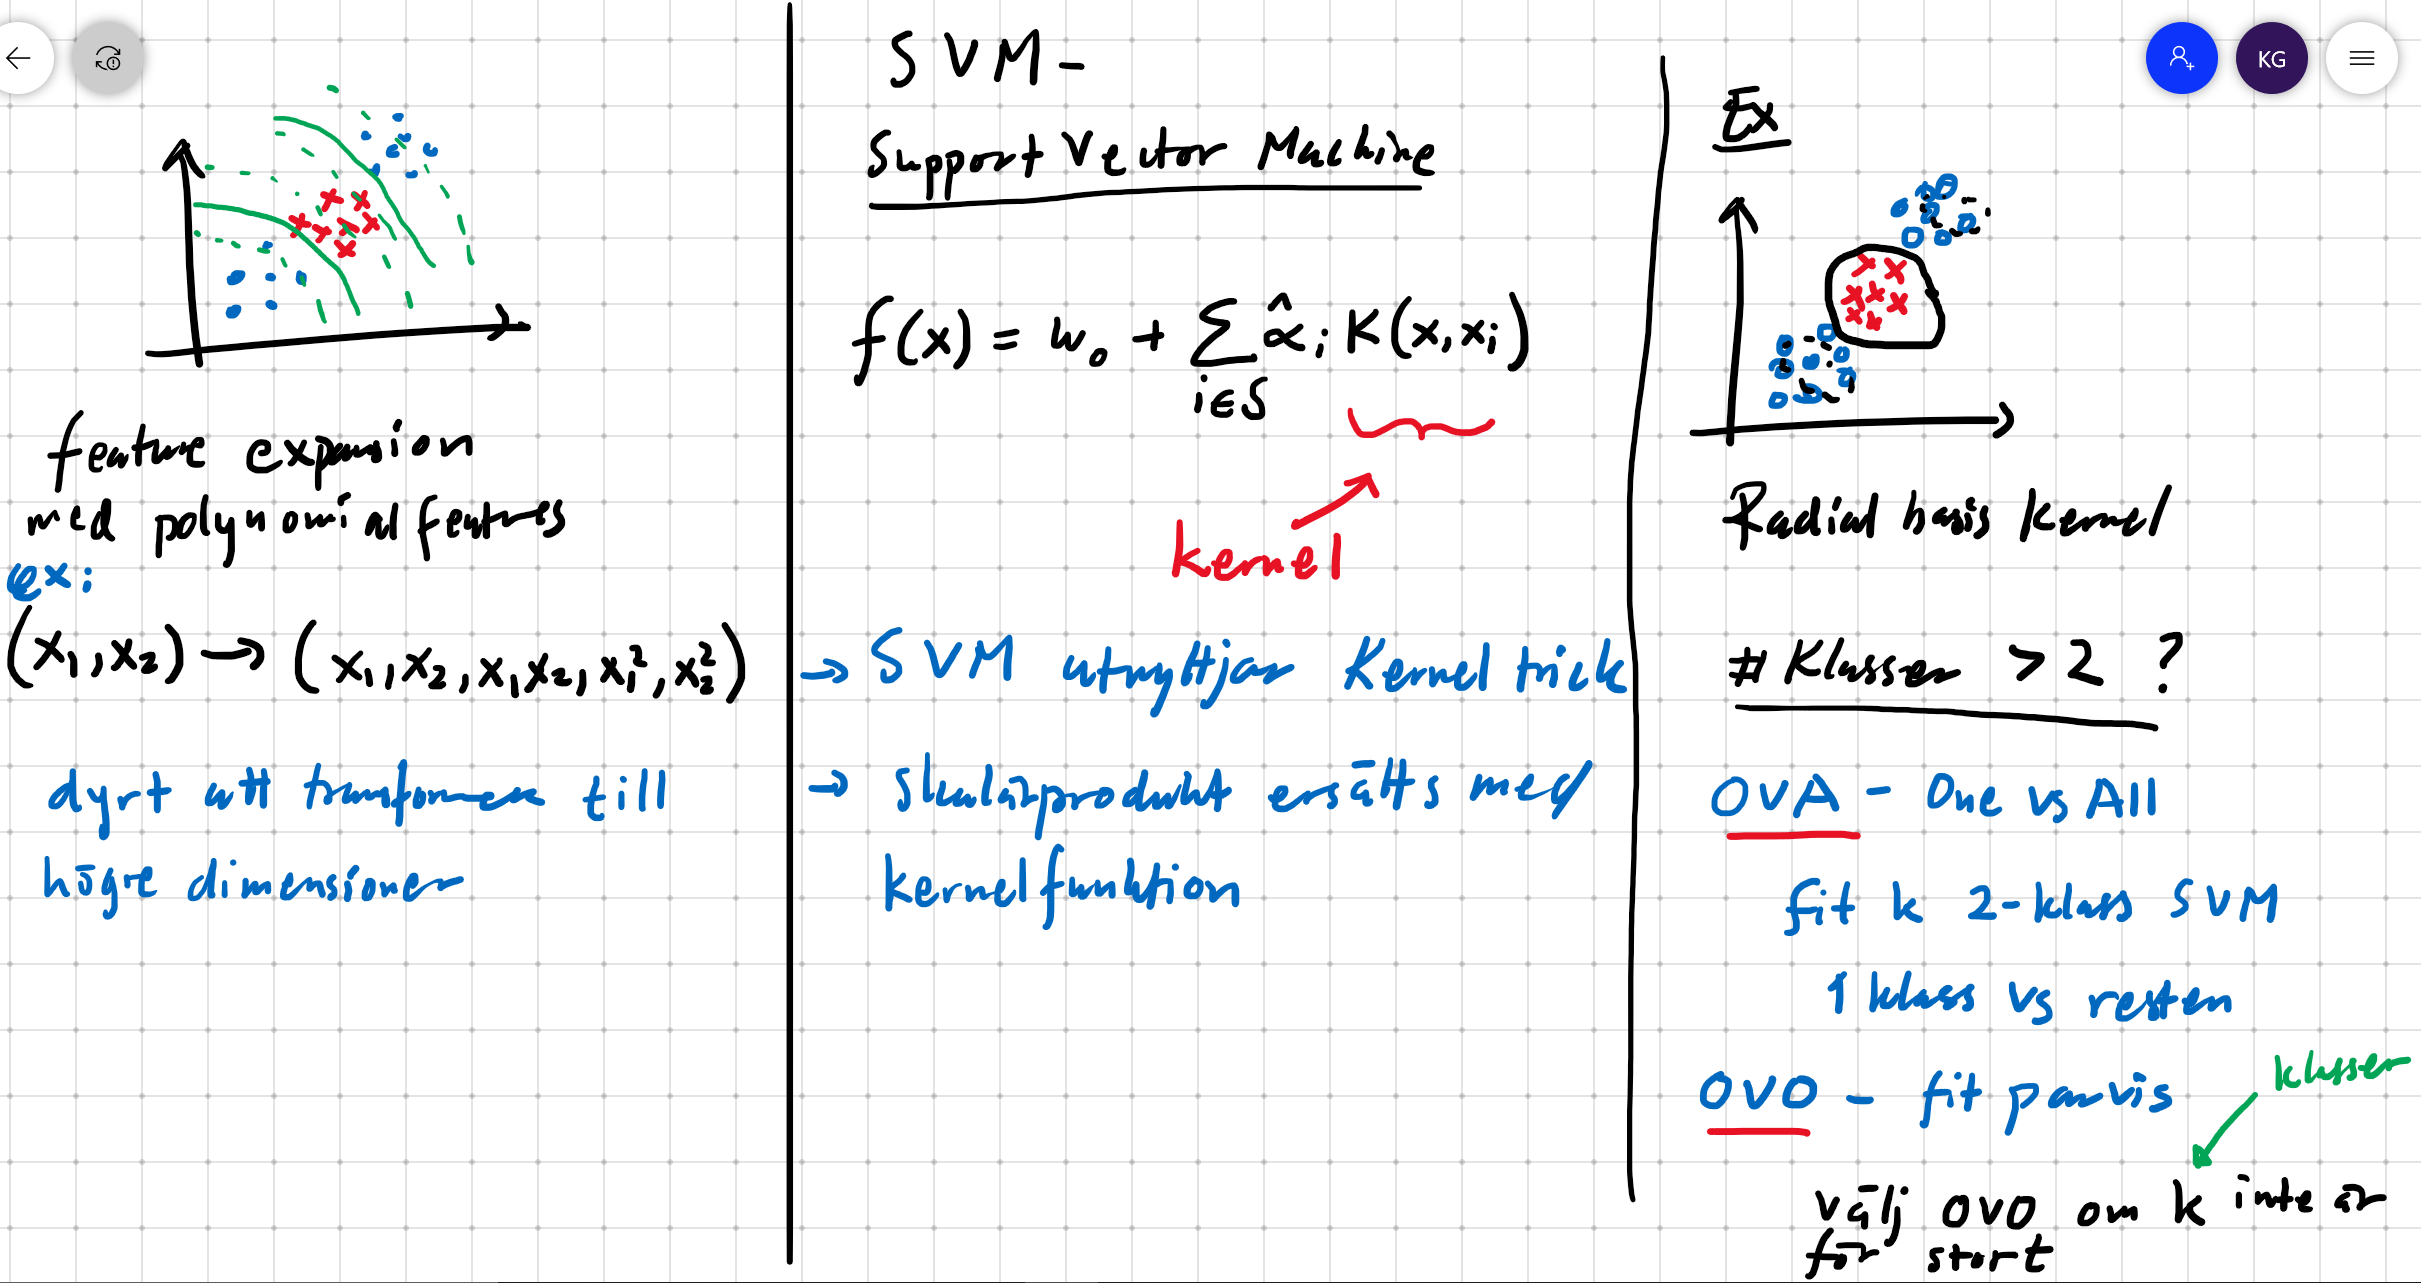 KG
feature expansion
med polynomial features
ex:
(x₁,x₂) → (x₁,x₂,x₁x₂,x₁²,x₂²)
dyrt att transformera till
högre dimensioner
SVM -
Support Vector Machine
f(x) = w₀ + Σ α̂ᵢ K(x,xᵢ)
i∈S
kernel
→ SVM utnyttjar Kernel trick
→ Skalärprodukt ersätts med
kernelfunktion
Ex
Radial basis kernel
# Klasser > 2 ?
OVA - One vs All
fit k 2-klass SVM
1 klass vs resten
klasser
OVO - fit parvis
välj OVO om k inte är
för stort